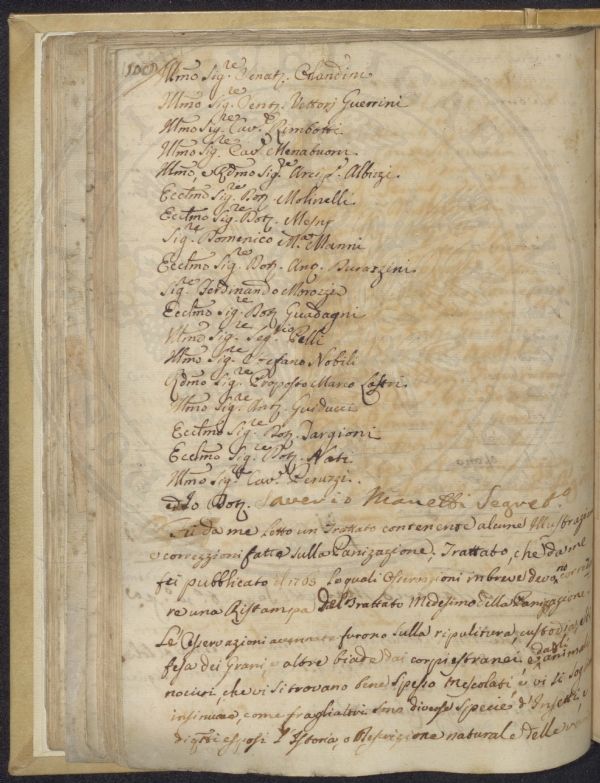 Illmo Sig.re Senat.
Illmo Sig.re Vettorj Guerrini
Illmo Sig.re Cav.e Rimbotti
Illmo Sig.re Cav.e Menabuoni
Illmo, e Rdmo Sig.re Arcip.e Albizi
Eccelmo Sig.re Dott. Molinelli
Eccelmo Sig.re Dott.
Sig.re Domenico M.a Manni
Eccelmo Sig.re Dott. Ang. Burazzini
Sig.re Ferdinando Morozzi
Eccelmo Sig.re Dott. Guadagni
Illmo Sig.re Seg.rio Pelli
Illmo Sig.re Stefano Nobili
Rdmo Sig.re Proposto Marco Lastri
Illmo Sig.re Ant. Guiducci
Eccelmo Sig.re Dott. Targioni
Eccelmo Sig.re Dott. Nati
Illmo Sig.re Cav.e Peruzzi
ed Io Dott. Saverio Manetti Segret.o
Fù da me Letto un Trattato contenente alcune Illustrazioni
e correzzioni fatte sulla Panizazione, Trattato, che da me
fù pubblicato il 1765 Le quali Osservazioni in breve
re una Ristampa del Trattato Medesimo della Panizazione.
Le Osservazioni accennate furono sulla ripulitura, custodia, e di
fesa dei Grani, e altre biade dai corpi estranei, e dagli animali
nocivi, che vi si trovano bene spesso Mescolati e vi si
insinuano, come fra gli altri sono diverse Specie d'Insetti, e
di q.ti esposi l'Istoria, o Descrizione naturale delle